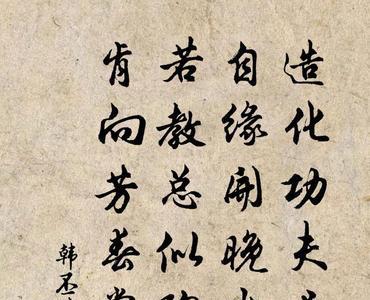 造化功夫
自缘開晚
若教总似
肯向芳春
韩丕